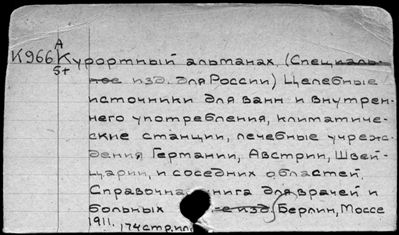 А
К966 Курортный альманах. (Специаль-
5+
ное изд. для России) Целебные
источники для ванн и внутрен-
него употребления, климатиче-
ские станции, лечебные учреж-
дения Германии, Австрии, Швей-
царии, и соседних областей.
Справочная книга для врачей и
больных изд. Берлин, Моссе
1911. 174 стр. илл